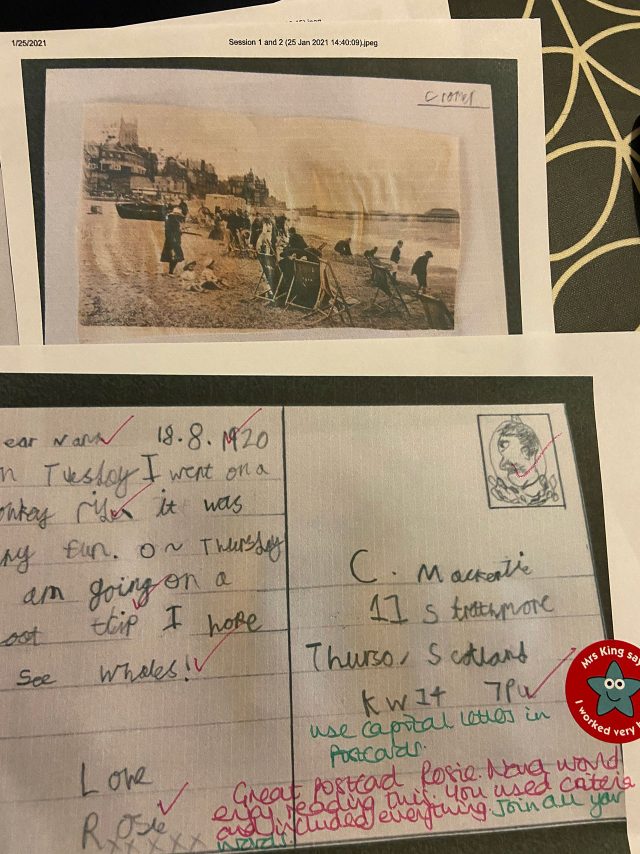 1/25/2021
Session 1 and 2 (25 Jan 2021 14:40:09).jpeg
Cromer
ear Nana
18.8.1920
n Tuesday I went on a
onkey ride it was
ny fun. On Thursday
am going on a
oat trip I hope
see whales!
Love
Rosie
xxxxx
C. Mackenzie
11 Strathmore
Thurso, Scotland
KW14 7PU
use capital letters in
Postcards.
Great postcard Rosie. Nana would
enjoy reading this. You used criteria
and included everything. Join all your
words.
Mrs King say
I worked very h